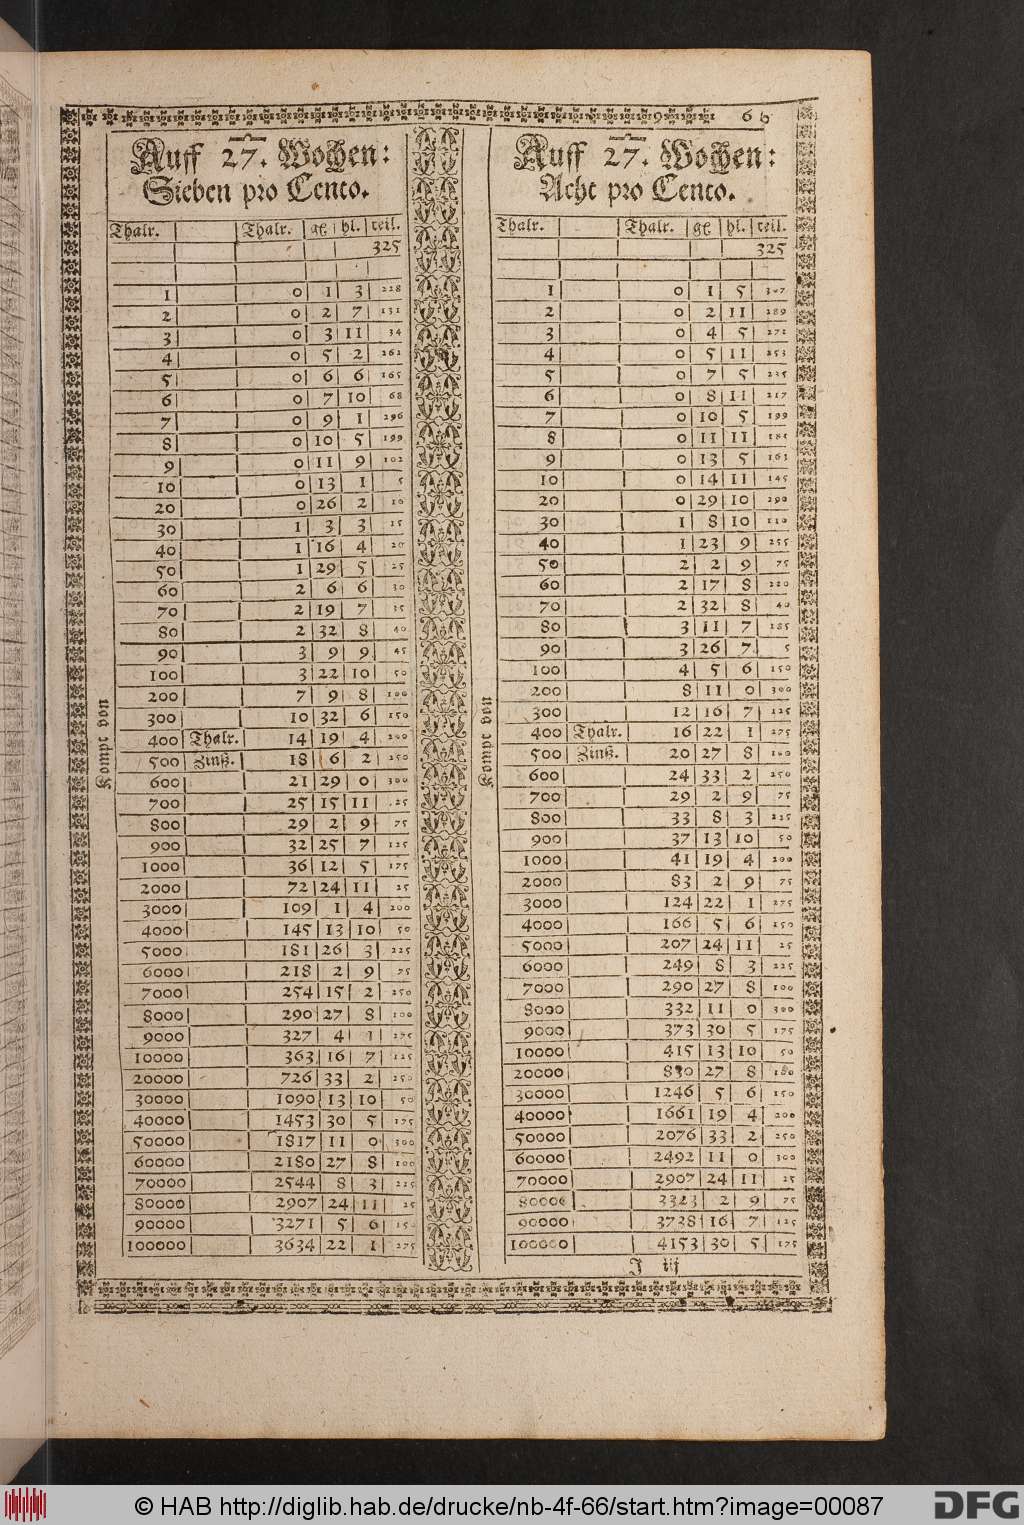 6
Auff 27. Wochen:
Sieben pro Cento.
Thalr. Thalr. gl. hl. teil.
325
1 0 1 3 228
2 0 2 7 131
3 0 3 11 34
4 0 5 2 262
5 0 6 6 165
6 0 7 10 68
7 0 9 1 296
8 0 10 5 199
9 0 11 9 102
10 0 13 1 5
20 0 26 2 10
30 1 3 3 15
40 1 16 4 20
50 1 29 5 25
60 2 6 6 30
70 2 19 7 35
80 2 32 8 40
90 3 9 9 45
100 3 22 10 50
200 7 9 8 100
300 10 32 6 150
400 Thalr. 14 19 4 200
500 Zinß. 18 6 2 250
600 21 29 0 300
700 25 15 11 25
800 29 2 9 75
900 32 25 7 125
1000 36 12 5 175
2000 72 24 11 25
3000 109 1 4 200
4000 145 13 10 50
5000 181 26 3 225
6000 218 2 9 75
7000 254 15 2 250
8000 290 27 8 100
9000 327 4 1 275
10000 363 16 7 125
20000 726 33 2 250
30000 1090 13 10 50
40000 1453 30 5 175
50000 1817 11 0 300
60000 2180 27 8 100
70000 2544 8 3 225
80000 2907 24 11 25
90000 3271 5 6 150
100000 3634 22 1 275
Kompt von
Auff 27. Wochen:
Acht pro Cento.
Thalr. Thalr. gl. hl. teil.
325
1 0 1 5 307
2 0 2 11 289
3 0 4 5 271
4 0 5 11 253
5 0 7 5 235
6 0 8 11 217
7 0 10 5 199
8 0 11 11 181
9 0 13 5 163
10 0 14 11 145
20 0 29 10 290
30 1 8 10 110
40 1 23 9 255
50 2 2 9 75
60 2 17 8 220
70 2 32 8 40
80 3 11 7 185
90 3 26 7 5
100 4 5 6 150
200 8 11 0 300
300 12 16 7 125
400 Thalr. 16 22 1 275
500 Zinß. 20 27 8 100
600 24 33 2 250
700 29 2 9 75
800 33 8 3 225
900 37 13 10 50
1000 41 19 4 200
2000 83 2 9 75
3000 124 22 1 275
4000 166 5 6 150
5000 207 24 11 25
6000 249 8 3 225
7000 290 27 8 100
8000 332 11 0 300
9000 373 30 5 175
10000 415 13 10 50
20000 830 27 8 100
30000 1246 5 6 150
40000 1661 19 4 200
50000 2076 33 2 250
60000 2492 11 0 300
70000 2907 24 11 25
80000 3323 2 9 75
90000 3738 16 7 125
100000 4153 30 5 175
Kompt von
J iij
© HAB http://diglib.hab.de/drucke/nb-4f-66/start.htm?image=00087
DFG